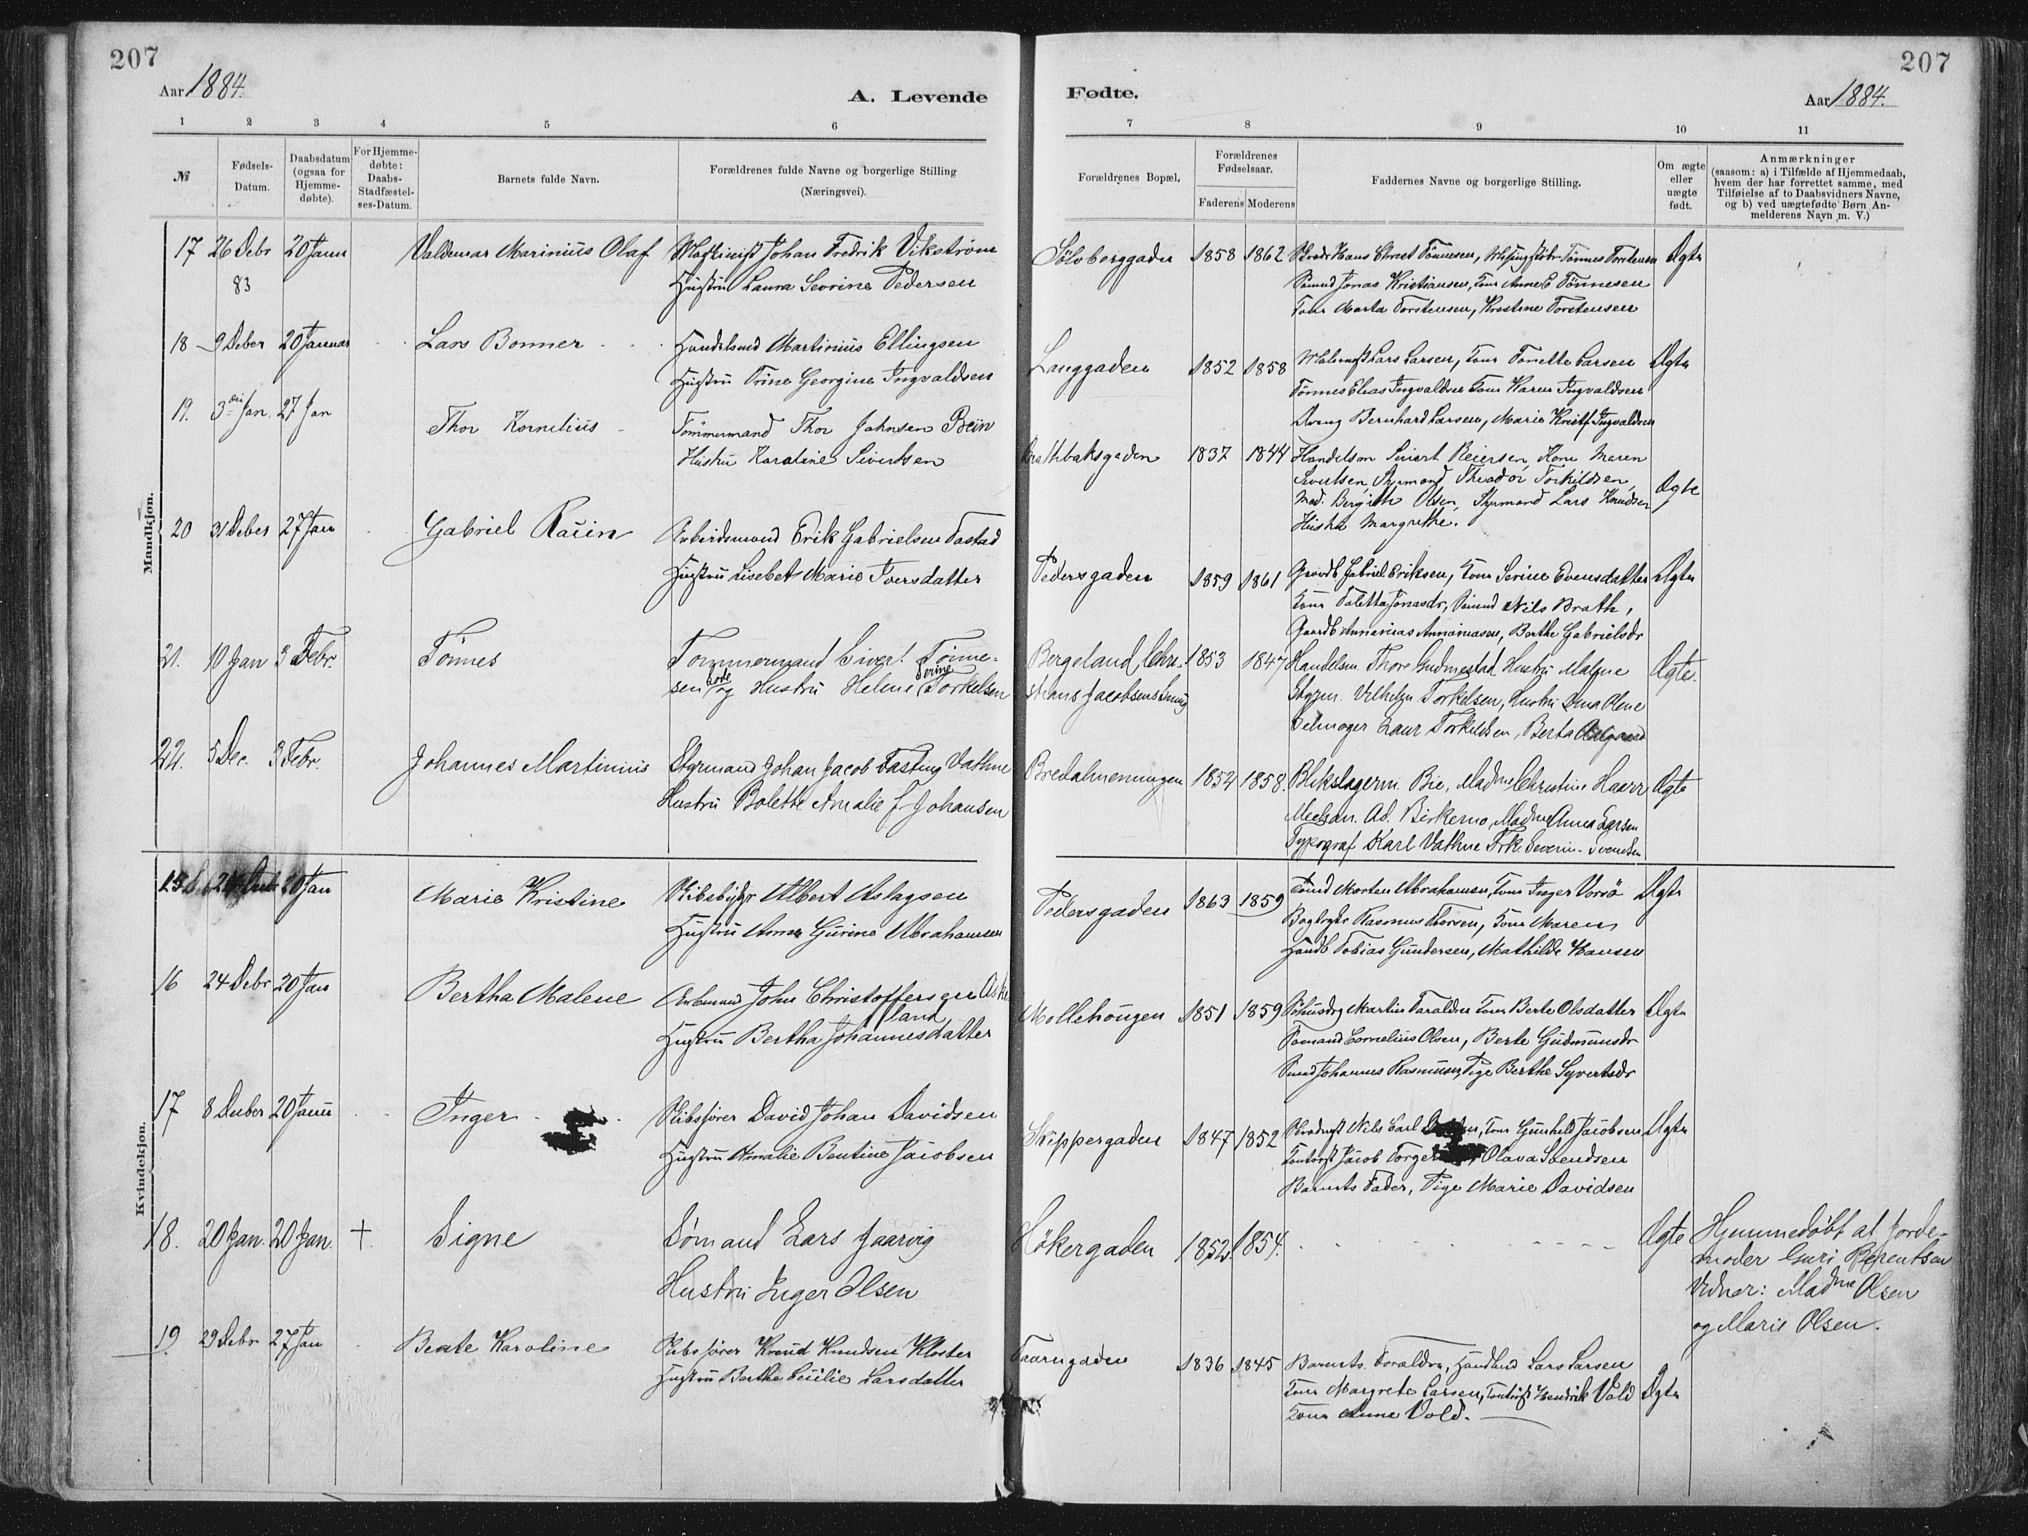 207
207
Aar 1884.
A. Levende
Fødte.
Aar 1884.
1 2 3 4 5 6
7 8 9 10 11
№
Fødsels-
Datum.
Daabsdatum
(ogsaa for
Hjemme-
døbte).
For Hjemme-
døbte:
Daabs-
Stadfæstel-
ses-Datum.
Barnets fulde Navn.
Forældrenes fulde Navne og borgerlige Stilling
(Næringsvei).
Forældrenes Bopæl.
Forældrenes
Fødselsaar.
Faderens Moderens
Faddernes Navne og borgerlige Stilling.
Om ægte
eller
uægte
født.
Anmærkninger
(saasom: a) i Tilfælde af Hjemmedaab,
hvem der har forrettet samme, med
Tilføielse af to Daabsvidners Navne,
og b) ved uægtefødte Børn An-
melderens Navn m. V.)
Mandkjøn.
17 26 Debr 20 Janu Valdemar Marinius Olaf Maskinist Johan Fredrik Vikstrøm
83 Hustru Laura Sevrine Pedersen
Sölvberggaden 1858 1862 Hans Ernst Tönnesen, Tönnes Torstensen Ægte
Jonas Kristiansen, Kone Anne E Tönnesen
Kone Marta Torstensen, Kristine Torstensen
18 9 Deber 20 Januar Lars Bonner Handelsmd Martinius Ellingsen
Hustru Trine Georgine Ingvaldsen
Langgaden 1852 1858 Lars Larsen, Kone Tonette Larsen Ægte
Tönnes Elias Ingvaldsen Kone Karen Ingvaldsen
Bernhard Larsen, Marie Ingvaldsen
19. 3die Jan. 27 Jan Thor Kornelius Tømmermand Thor Johnsen Bein
Hustru Karoline Sivertsen
Brathbaksgaden 1837 1844 Handelsm Sivert Reiersen, Kone Maren
Sivertsen, Styrmand Theodor Torkildsen,
Mad. Bergith Olsen, Styrmand Lars Knudsen Ægte
Hustru Margrethe.
20 31 Deber 27 Jan Gabriel Racin Arbeidsmand Erik Gabrielsen Tastad
Hustru Lisebet Marie Iversdatter
Pedersgaden 1859 1861 Gaardb Gabriel Eriksen, Kone Serine Evensdatter Ægte
Kone Taletta Jonasdr, Sömd Nils Brath,
Gaardb Annanias Annaniasen, Berthe Gabrielsdr
21. 10 Jan 3 Febr. Tönnes Tømmermand Sivert Tönne-
sen og Hustru Helene Serine Torkelsen
Bergeland, Chri- 1853 1847 Handelsm Thore Gudmestad, Hustru Malene Ægte.
stians Jacobsens
Styrm. Vilhelm Torkelsen, Hustru Dina Olene
Seilmager Laur Torkeldsen, Berta Aalgaard
22. 5 Dec. 3 Febr. Johannes Martinius Styrmand Johan Jacob Fasting Vathne
Hustru Bolette Amalie f. Johansen
Bredalmenningen 1852 1858. Blikslagerm. Bie, Madme Christine Haarr Ægte
Ad. Birkemo, Madme Anna Larsen
Typograf Karl Vathne Frk. Severin. Svendsen
Kvindekjøn.
15 20 Jan Marie Kristine Skibsbygr Albert Aslagsen
Hustru Anna Gurine Abrahamsen
Pedersgaden 1863 1859 Morten Abrahamsen, Kone Inger Ægte
Rasmus Thorsen, Kone Maren
Handb Tobias Gundersen, Mathilde Hansen
16 24 Debr 20 Jan Bertha Malene Arbmand John Christoffersen Aske
land
Hustru Bertha Johannesdatter
Mollehougen 1851 1859 Martin Taraldsen Kone Berte Olsdatter Ægte
Cornelius Olsen, Berte Gudmunsdr
Johannes Rasmusen, Pige Berthe Syvertsdr
17 8 Deber 20 Janu Inger Skibsfører David Johan Davidsen
Hustru Amalie Bentine Jacobsen
Skippergaden 1847 1852 Nils Carl Kone Gunhild Jacobsen Ægte
Jacob Olava Svendsen
Barnets Fader, Pige Marie Davidsen
18. 20 Jan. 20 Jan. + Signe Sömand Lars Jaarvig
Hustru Inger Olsen
Hökergaden 1852 1854. Ægte Hjemmedöbt af Jorde-
moder Guri Berentsen
Vidner: Madme Olsen
og Marie Olsen.
19 29 Debr 27 Jan Beate Karoline Skibsfører Knud Knudsen Kloster
Hustru Berthe Cecilie Larsdatter
Taarngaden 1836 1845 Barnets Foraldre, Handlsmd Lars Larsen
Kone Margrete Larsen, Hendrik Vold Ægte
Kone Anne Vold.